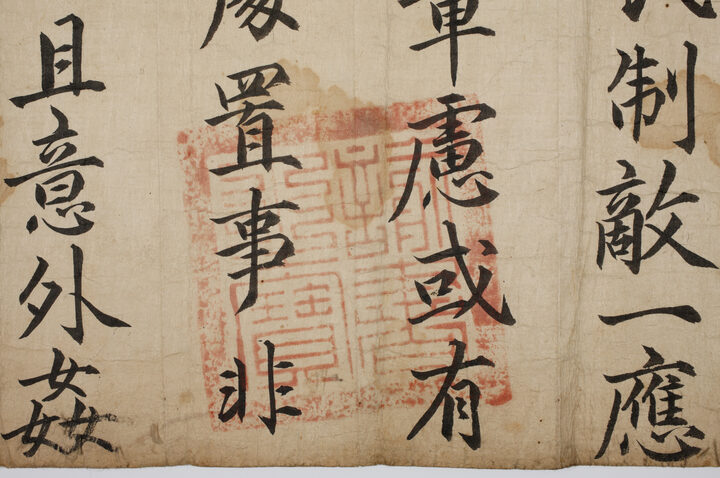 民制敵一應
章慮或有
處置事非
且意外姦